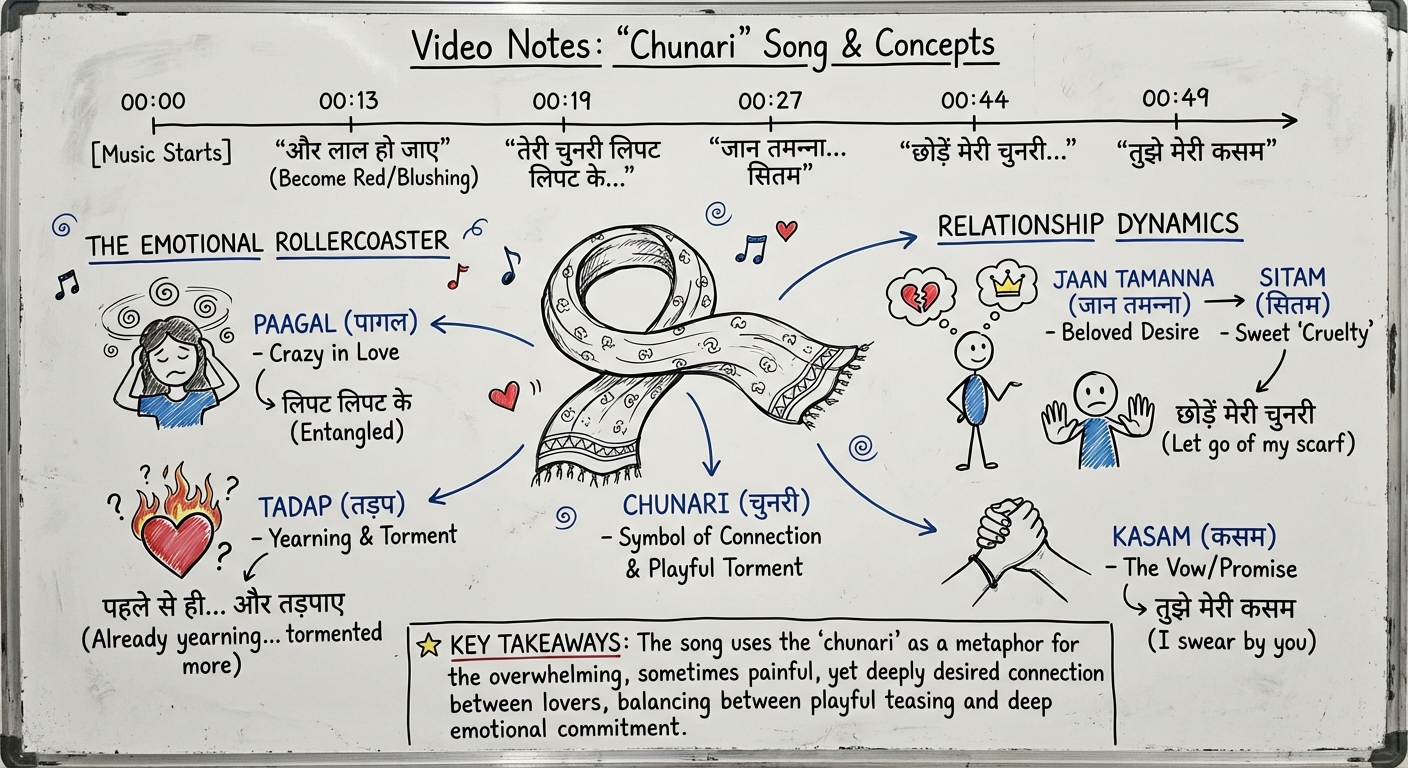 Video Notes: “Chunari” Song & Concepts
00:00
00:13
00:19
00:27
00:44
00:49
[Music Starts]
“और लाल हो जाए”
(Become Red/Blushing)
“तेरी चुनरी लिपट
लिपट के...”
“जान तमन्ना...
सितम”
“छोड़ें मेरी चुनरी...”
“तुझे मेरी कसम”
THE EMOTIONAL ROLLERCOASTER
PAAGAL (पागल)
- Crazy in Love
लिपट लिपट के
(Entangled)
? ? ? ?
TADAP (तड़प)
- Yearning & Torment
पहले से ही... और तड़पाए
(Already yearning... tormented
more)
CHUNARI (चुनरी)
- Symbol of Connection
& Playful Torment
RELATIONSHIP DYNAMICS
JAAN TAMANNA
(जान तमन्ना)
- Beloved Desire
SITAM
(सितम)
- Sweet ‘Cruelty’
छोड़ें मेरी चुनरी
(Let go of my scarf)
KASAM (कसम)
- The Vow/Promise
तुझे मेरी कसम
(I swear by you)
KEY TAKEAWAYS: The song uses the ‘chunari’ as a metaphor for
the overwhelming, sometimes painful, yet deeply desired connection
between lovers, balancing between playful teasing and deep
emotional commitment.